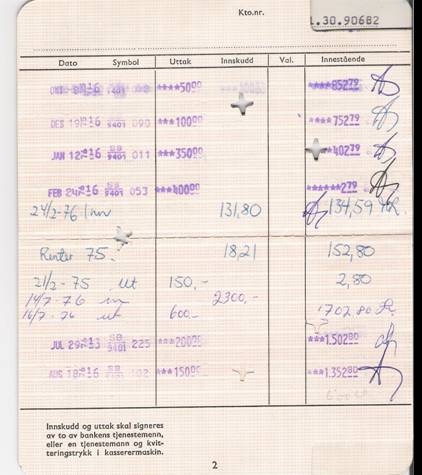 Kto.nr.
1.30.90682
Dato Symbol Uttak Innskudd Val. Innestående
****50⁰⁰ ****852⁷⁹
DES 19 16 9401 090 ***100⁰⁰ ****752⁷⁹
JAN 12 16 9401 011 ***350⁰⁰ ***402⁷⁹
FEB 24 16 9401 053 ***400⁰⁰ ******2⁷⁹
24/2-76 inn 131,80 134,59
Renter 75. 18,21 152,80
21/2-75 ut 150,- 2,80
14/7-76 inn 2300,-
16/7-76 ut 600,- 1702,80
JUL 29 9401 225 ***200⁰⁰ **1.502⁸⁰
AUG 18 16 102 ***150⁰⁰ **1.352⁸⁰
Innskudd og uttak skal signeres
av to av bankens tjenestemenn,
eller en tjenestemann og kvit-
teringstrykk i kasserermaskin.
2